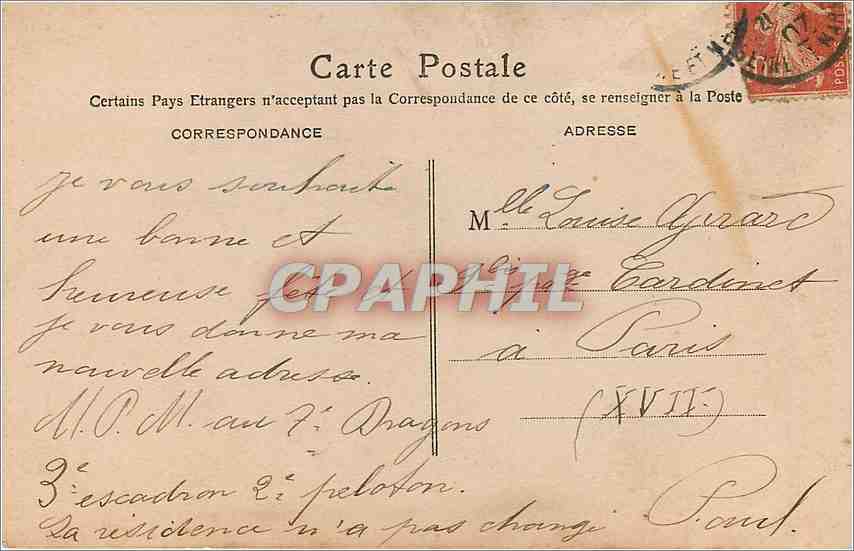 Carte Postale
Certains Pays Etrangers n'acceptant pas la Correspondance de ce côté, se renseigner à la Poste
CORRESPONDANCE
ADRESSE
je vous souhaite
une bonne et
heureuse fête et
je vous donne ma
nouvelle adresse.
M. P. M. au 7e Dragons
3e escadron 2e peloton.
La résidence n'a pas changé Paul.
Mlle Louise Gérard
9bis Tardinet
à Paris
(XVIIe)
CPAPHIL